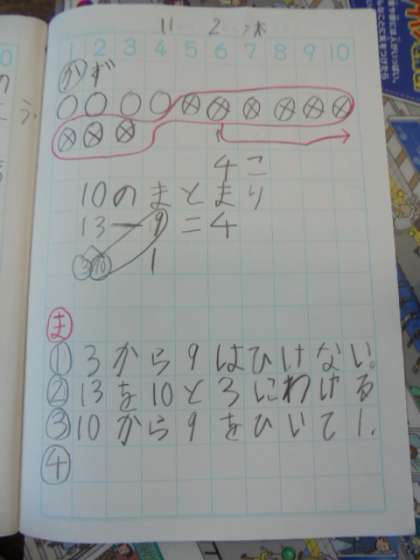 11 2 水
1 2 3 4 5 6 7 8 9 10
かず
4こ
10のまとまり
13-9=4
3 10 1
ま
① 3から9はひけない。
② 13を10と3にわける
③ 10から9をひいて1.
④